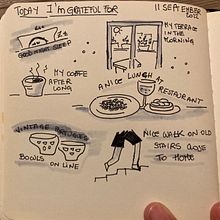 TODAY I'M GRATEFUL FOR
11 SEPTEMBER
GOOD NIGHT SLEEP
MY TERRACE
IN THE
MORNING
MY COFFEE
AFTER
LONG
A NICE LUNCH AT
RESTAURANT
VINTAGE
BOWLS
ON LINE
NICE WALK ON OLD
STAIRS CLOSE
TO HOME